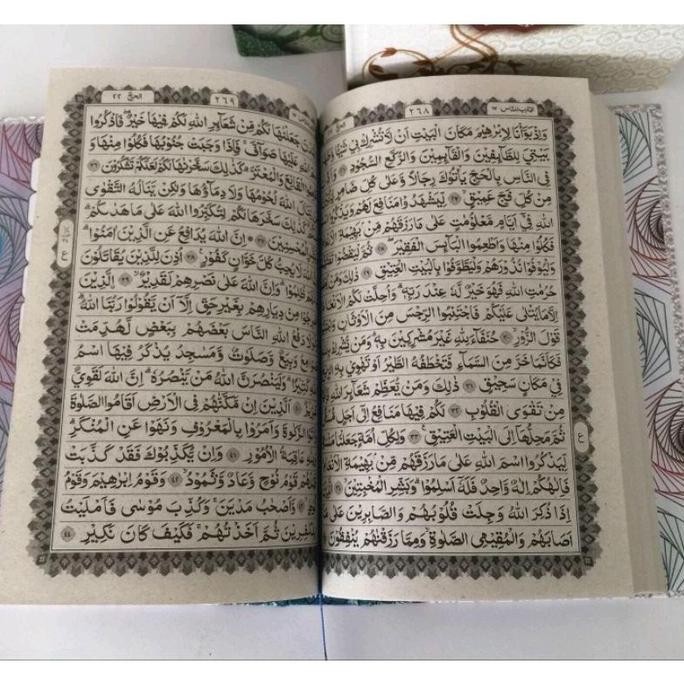 اقترب للناس ١٧
٢٦٨
وَاِذْ بَوَّأْنَا لِاِبْرٰهِيْمَ مَكَانَ الْبَيْتِ اَنْ لَّا تُشْرِكْ بِيْ شَيْـًٔا
بَيْتِيَ لِلطَّاۤىِٕفِيْنَ وَالْقَاۤىِٕمِيْنَ وَالرُّكَّعِ السُّجُوْدِ
فِى النَّاسِ بِالْحَجِّ يَأْتُوْكَ رِجَالًا وَّعَلٰى كُلِّ ضَامِرٍ
مِنْ كُلِّ فَجٍّ عَمِيْقٍ ۙ ٢٧ لِّيَشْهَدُوْا مَنَافِعَ لَهُمْ وَيَذْكُرُوا
اللّٰهِ فِيْٓ اَيَّامٍ مَّعْلُوْمٰتٍ عَلٰى مَا رَزَقَهُمْ مِّنْۢ بَهِيْمَةِ
فَكُلُوْا مِنْهَا وَاَطْعِمُوا الْبَاۤىِٕسَ الْفَقِيْرَ ٢٨ ثُمَّ لْيَقْضُوْا
وَلْيُوْفُوْا نُذُوْرَهُمْ وَلْيَطَّوَّفُوْا بِالْبَيْتِ الْعَتِيْقِ ٢٩ ذٰلِكَ وَمَنْ
حُرُمٰتِ اللّٰهِ فَهُوَ خَيْرٌ لَّهٗ عِنْدَ رَبِّهٖ ۗ وَاُحِلَّتْ لَكُمُ
اِلَّا مَا يُتْلٰى عَلَيْكُمْ فَاجْتَنِبُوا الرِّجْسَ مِنَ الْاَوْثَانِ
قَوْلَ الزُّوْرِ ۙ ٣٠ حُنَفَاۤءَ لِلّٰهِ غَيْرَ مُشْرِكِيْنَ بِهٖ ۗ وَمَنْ يُّشْرِكْ
فَكَاَنَّمَا خَرَّ مِنَ السَّمَاۤءِ فَتَخْطَفُهُ الطَّيْرُ اَوْ تَهْوِيْ بِهِ
فِيْ مَكَانٍ سَحِيْقٍ ٣١ ذٰلِكَ وَمَنْ يُّعَظِّمْ شَعَاۤىِٕرَ اللّٰهِ
مِنْ تَقْوَى الْقُلُوْبِ ٣٢ لَكُمْ فِيْهَا مَنَافِعُ اِلٰٓى اَجَلٍ
ثُمَّ مَحِلُّهَآ اِلَى الْبَيْتِ الْعَتِيْقِ ٣٣ وَلِكُلِّ اُمَّةٍ جَعَلْنَا
لِّيَذْكُرُوا اسْمَ اللّٰهِ عَلٰى مَا رَزَقَهُمْ مِّنْۢ بَهِيْمَةِ
فَاِلٰهُكُمْ اِلٰهٌ وَّاحِدٌ فَلَهٗٓ اَسْلِمُوْا ۗ وَبَشِّرِ الْمُخْبِتِيْنَ
اِذَا ذُكِرَ اللّٰهُ وَجِلَتْ قُلُوْبُهُمْ وَالصّٰبِرِيْنَ عَلٰى
اَصَابَهُمْ وَالْمُقِيْمِى الصَّلٰوةِ وَمِمَّا رَزَقْنٰهُمْ يُنْفِقُوْنَ
ع
٢٦٩
الحج ٢٢
جَعَلْنٰهَا لَكُمْ مِّنْ شَعَاۤىِٕرِ اللّٰهِ لَكُمْ فِيْهَا خَيْرٌ ۖ فَاذْكُرُوا
اللّٰهِ عَلَيْهَا صَوَاۤفَّ ۚ فَاِذَا وَجَبَتْ جُنُوْبُهَا فَكُلُوْا مِنْهَا وَ
الْقَانِعَ وَالْمُعْتَرَّ ۗ كَذٰلِكَ سَخَّرْنٰهَا لَكُمْ لَعَلَّكُمْ تَشْكُرُوْنَ ٣٦
اللّٰهَ لُحُوْمُهَا وَلَا دِمَاۤؤُهَا وَلٰكِنْ يَّنَالُهُ التَّقْوٰى
كَذٰلِكَ سَخَّرَهَا لَكُمْ لِتُكَبِّرُوا اللّٰهَ عَلٰى مَا هَدٰىكُمْ ۗ
الْمُحْسِنِيْنَ ٣٧ اِنَّ اللّٰهَ يُدَافِعُ عَنِ الَّذِيْنَ اٰمَنُوْا ۗ
اللّٰهَ لَا يُحِبُّ كُلَّ خَوَّانٍ كَفُوْرٍ ٣٨ اُذِنَ لِلَّذِيْنَ يُقَاتَلُوْنَ
ظُلِمُوْا ۗ وَاِنَّ اللّٰهَ عَلٰى نَصْرِهِمْ لَقَدِيْرٌ ۙ ٣٩ الَّذِيْنَ
مِنْ دِيَارِهِمْ بِغَيْرِ حَقٍّ اِلَّآ اَنْ يَّقُوْلُوْا رَبُّنَا اللّٰهُ ۗ
دَفْعُ اللّٰهِ النَّاسَ بَعْضَهُمْ بِبَعْضٍ لَّهُدِّمَتْ
وَبِيَعٌ وَّصَلَوٰتٌ وَّمَسٰجِدُ يُذْكَرُ فِيْهَا اسْمُ
كَثِيْرًا ۗ وَلَيَنْصُرَنَّ اللّٰهُ مَنْ يَّنْصُرُهٗ ۗ اِنَّ اللّٰهَ لَقَوِيٌّ
اَلَّذِيْنَ اِنْ مَّكَّنّٰهُمْ فِى الْاَرْضِ اَقَامُوا الصَّلٰوةَ
الزَّكٰوةَ وَاَمَرُوْا بِالْمَعْرُوْفِ وَنَهَوْا عَنِ الْمُنْكَرِ ۗ
عَاقِبَةُ الْاُمُوْرِ ٤١ وَاِنْ يُّكَذِّبُوْكَ فَقَدْ كَذَّبَتْ
قَوْمُ نُوْحٍ وَّعَادٌ وَّثَمُوْدُ ۙ ٤٢ وَقَوْمُ اِبْرٰهِيْمَ وَقَوْمُ
وَّاَصْحٰبُ مَدْيَنَ ۚ وَكُذِّبَ مُوْسٰى فَاَمْلَيْتُ
لِلْكٰفِرِيْنَ ثُمَّ اَخَذْتُهُمْ ۚ فَكَيْفَ كَانَ نَكِيْرِ ٤٤